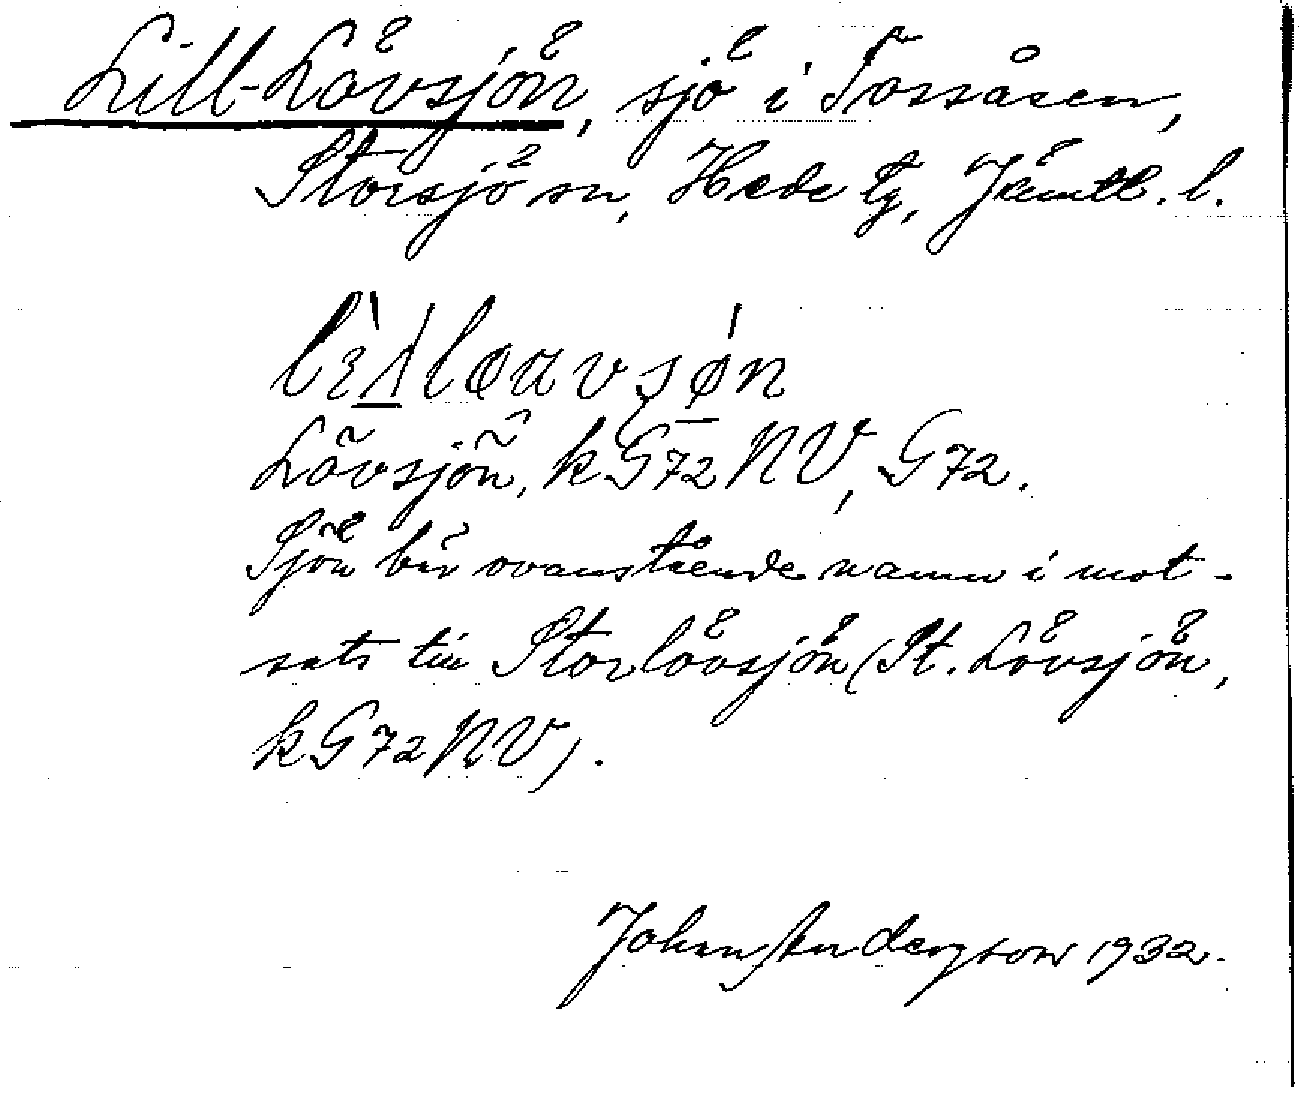 Lill-Lövsjön, sjö i Tossåsen,
Storsjö sn, Hede tg, Jämtl. l.
Lövsjön, kG72NV, G72.
Sjön bär ovanstående namn i mot-
sats till Storlövsjön (St. Lövsjön,
kG72NV).
John Anderzson 1932.